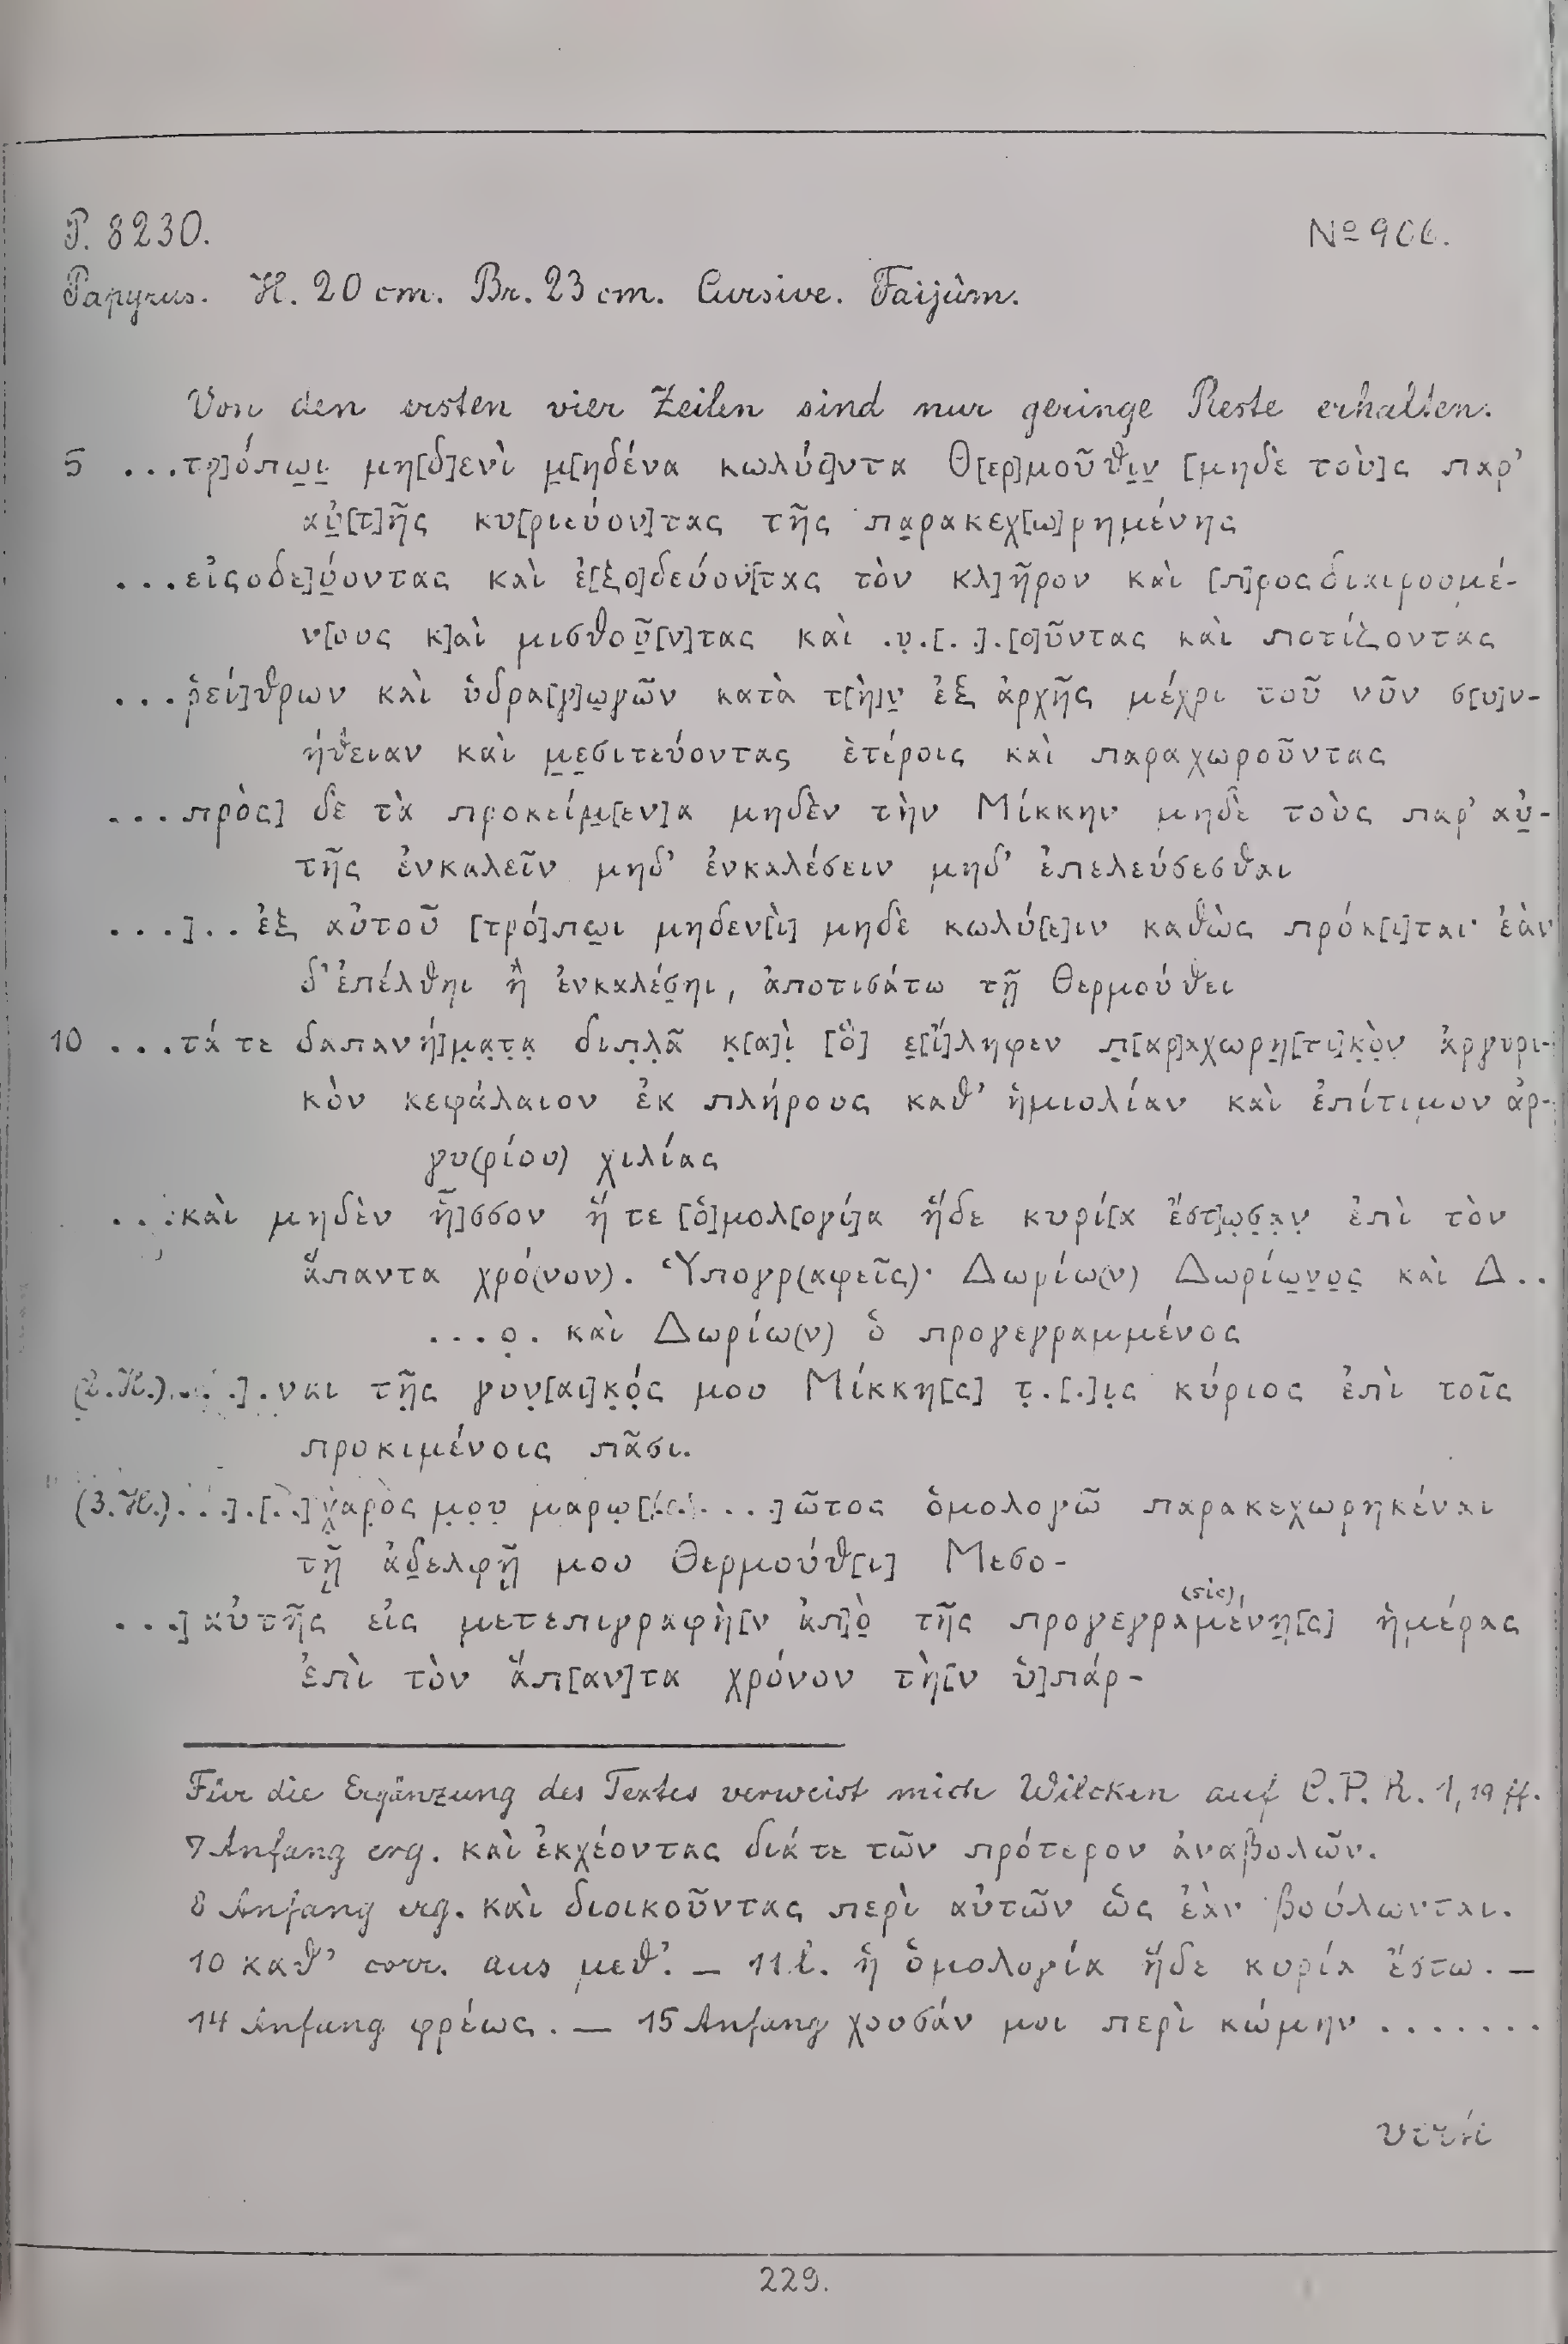 P. 8230.
No 906.
Papyrus. H. 20 cm. Br. 23 cm. Cursive. Faijûm.
Von den ersten vier Zeilen sind nur geringe Reste erhalten.
5 ...τρ]όπω̣ι̣ μη[δ]ενὶ μ̣[ηδένα κωλύο]ντα Θ[ερ]μοῦθι̣ν̣ [μηδὲ τοὺ]ς παρ’
αὐ̣[τ]ῆς κυ[ριεύον]τας τῆς πα̣ρακεχ[ω]ρημένης
...εἰςοδε]ύ̣οντας καὶ ἐ[ξο]δεύον[τας τὸν κλ]ῆρον καὶ [π]ροςδιαιρουμέ-
ν[ους κ]αὶ μισθοῦ̣[ν]τας καὶ .υ̣.[. .].[ο]ῦντας καὶ ποτίζοντας
...ῥεί]θρων καὶ ὑδρα[γ]ω̣γῶν κατὰ τ[ὴ]ν̣ ἐξ ἀρχῆς μέχρι τοῦ νῦν σ[υ]ν-
ήθειαν καὶ μ̣ε̣σιτεύοντας ἑτέροις καὶ παραχωροῦντας
...πρὸς] δὲ τὰ προκείμ̣[εν]α μηδὲν τὴν Μίκκην μηδὲ τοὺς παρ’ αὐ̣-
τῆς ἐνκαλεῖν μηδ’ ἐνκαλέσειν μηδ’ ἐπελεύσεσθαι
...]..ἐξ αὐτοῦ [τρό]πω̣ι μηδεν[ὶ] μηδὲ κωλύ[ε]ιν καθὼς πρόκ[ι]ται· ἐὰν
δ’ἐπέλθηι ἢ ἐνκαλέσ̣ηι, ἀποτισάτω τῇ Θερμούθει
10 ...τά τε δαπανή]μ̣α̣τ̣α̣ διπ̣λ̣ᾶ κ̣[α]ὶ̣ [ὃ] ε̣[ἴ]ληφεν π̣[αρ]αχωρη̣[τι]κ̣ὸ̣ν̣ ἀργυρι-
κὸν κεφάλαιον ἐκ πλήρους καθ’ ἡμιολίαν καὶ ἐπίτιμον ἀρ-
γυ(ρίου) χιλίας
...καὶ μηδὲν ἧ]σσον ἥ τε [ὁ]μολ[ογί]α ἥδε κυρί[α ἔστ]ω̣σ̣α̣ν̣ ἐπὶ τὸν
ἅπαντα χρό(νον). Ὑπογρ(αφεῖς)· Δωρίω(ν) Δωρίω̣ν̣ο̣ς̣ καὶ Δ..
...ο̣. καὶ Δωρίω(ν) ὁ προγεγραμμένος
(2. H.)...].ναι τῆ̣ς γυν̣[αι]κ̣ό̣ς μου Μίκκη[ς] τ̣.[.]ι̣ς κύριος ἐπὶ τοῖς
προκιμένοις πᾶσι.
(3. H.)...].[..]χαρ̣ὸς μ̣ο̣υ̣ μαρω̣[....]ῶτος ὁμολογῶ παρακεχωρηκέναι
τῇ ἀδ̣ελφῇ μου Θερμούθ[ι] Μεσο-
...]αὐτῆς εἰς μετεπιγραφὴ[ν ἀπ]ὸ̣ τῆς προγεγραμένη̣[ς] (sic) ἡμέρας
ἐπὶ τὸν ἅπ[αν]τα χρόνον τὴ[ν ὑ]πάρ-
Für die Ergänzung des Textes verweist mich Wilcken auf C.P.R. 1, 19 ff.
7 Anfang erg. καὶ ἐκχέοντας διά τε τῶν πρότερον ἀναβολῶν.
8 Anfang erg. καὶ διοικοῦντας περὶ αὐτῶν ὡς ἐὰν βούλωνται.
10 καθ’ corr. aus μεθ’. – 11 l. ἡ ὁμολογία ἥδε κυρία ἔστω. –
14 Anfang φρέως. – 15 Anfang χουσάν μοι περὶ κώμην .......
229.